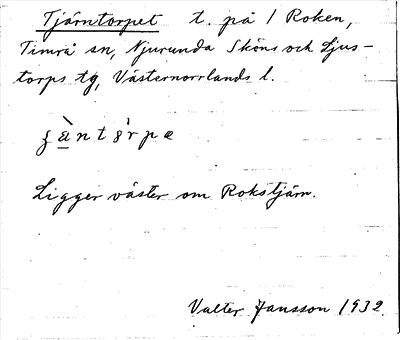 Tjärntorpet t. på 1 Roken,
Timrå sn, Njurunda Sköns och Ljus-
torps tg, Västernorrlands l.
Ligger väster om Rokstjärn.
Valter Jansson 1932